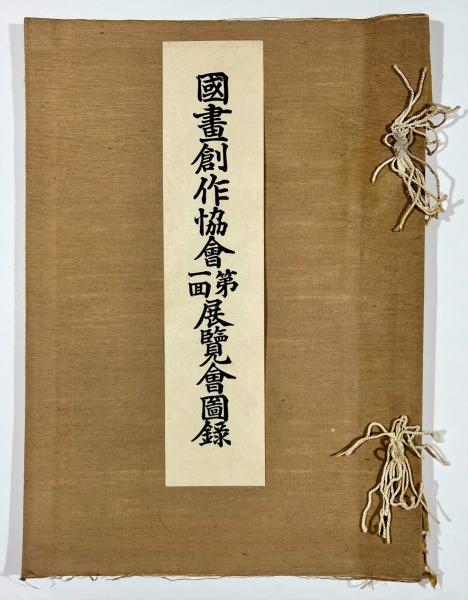 國畫創作協會第一回展覽會圖錄